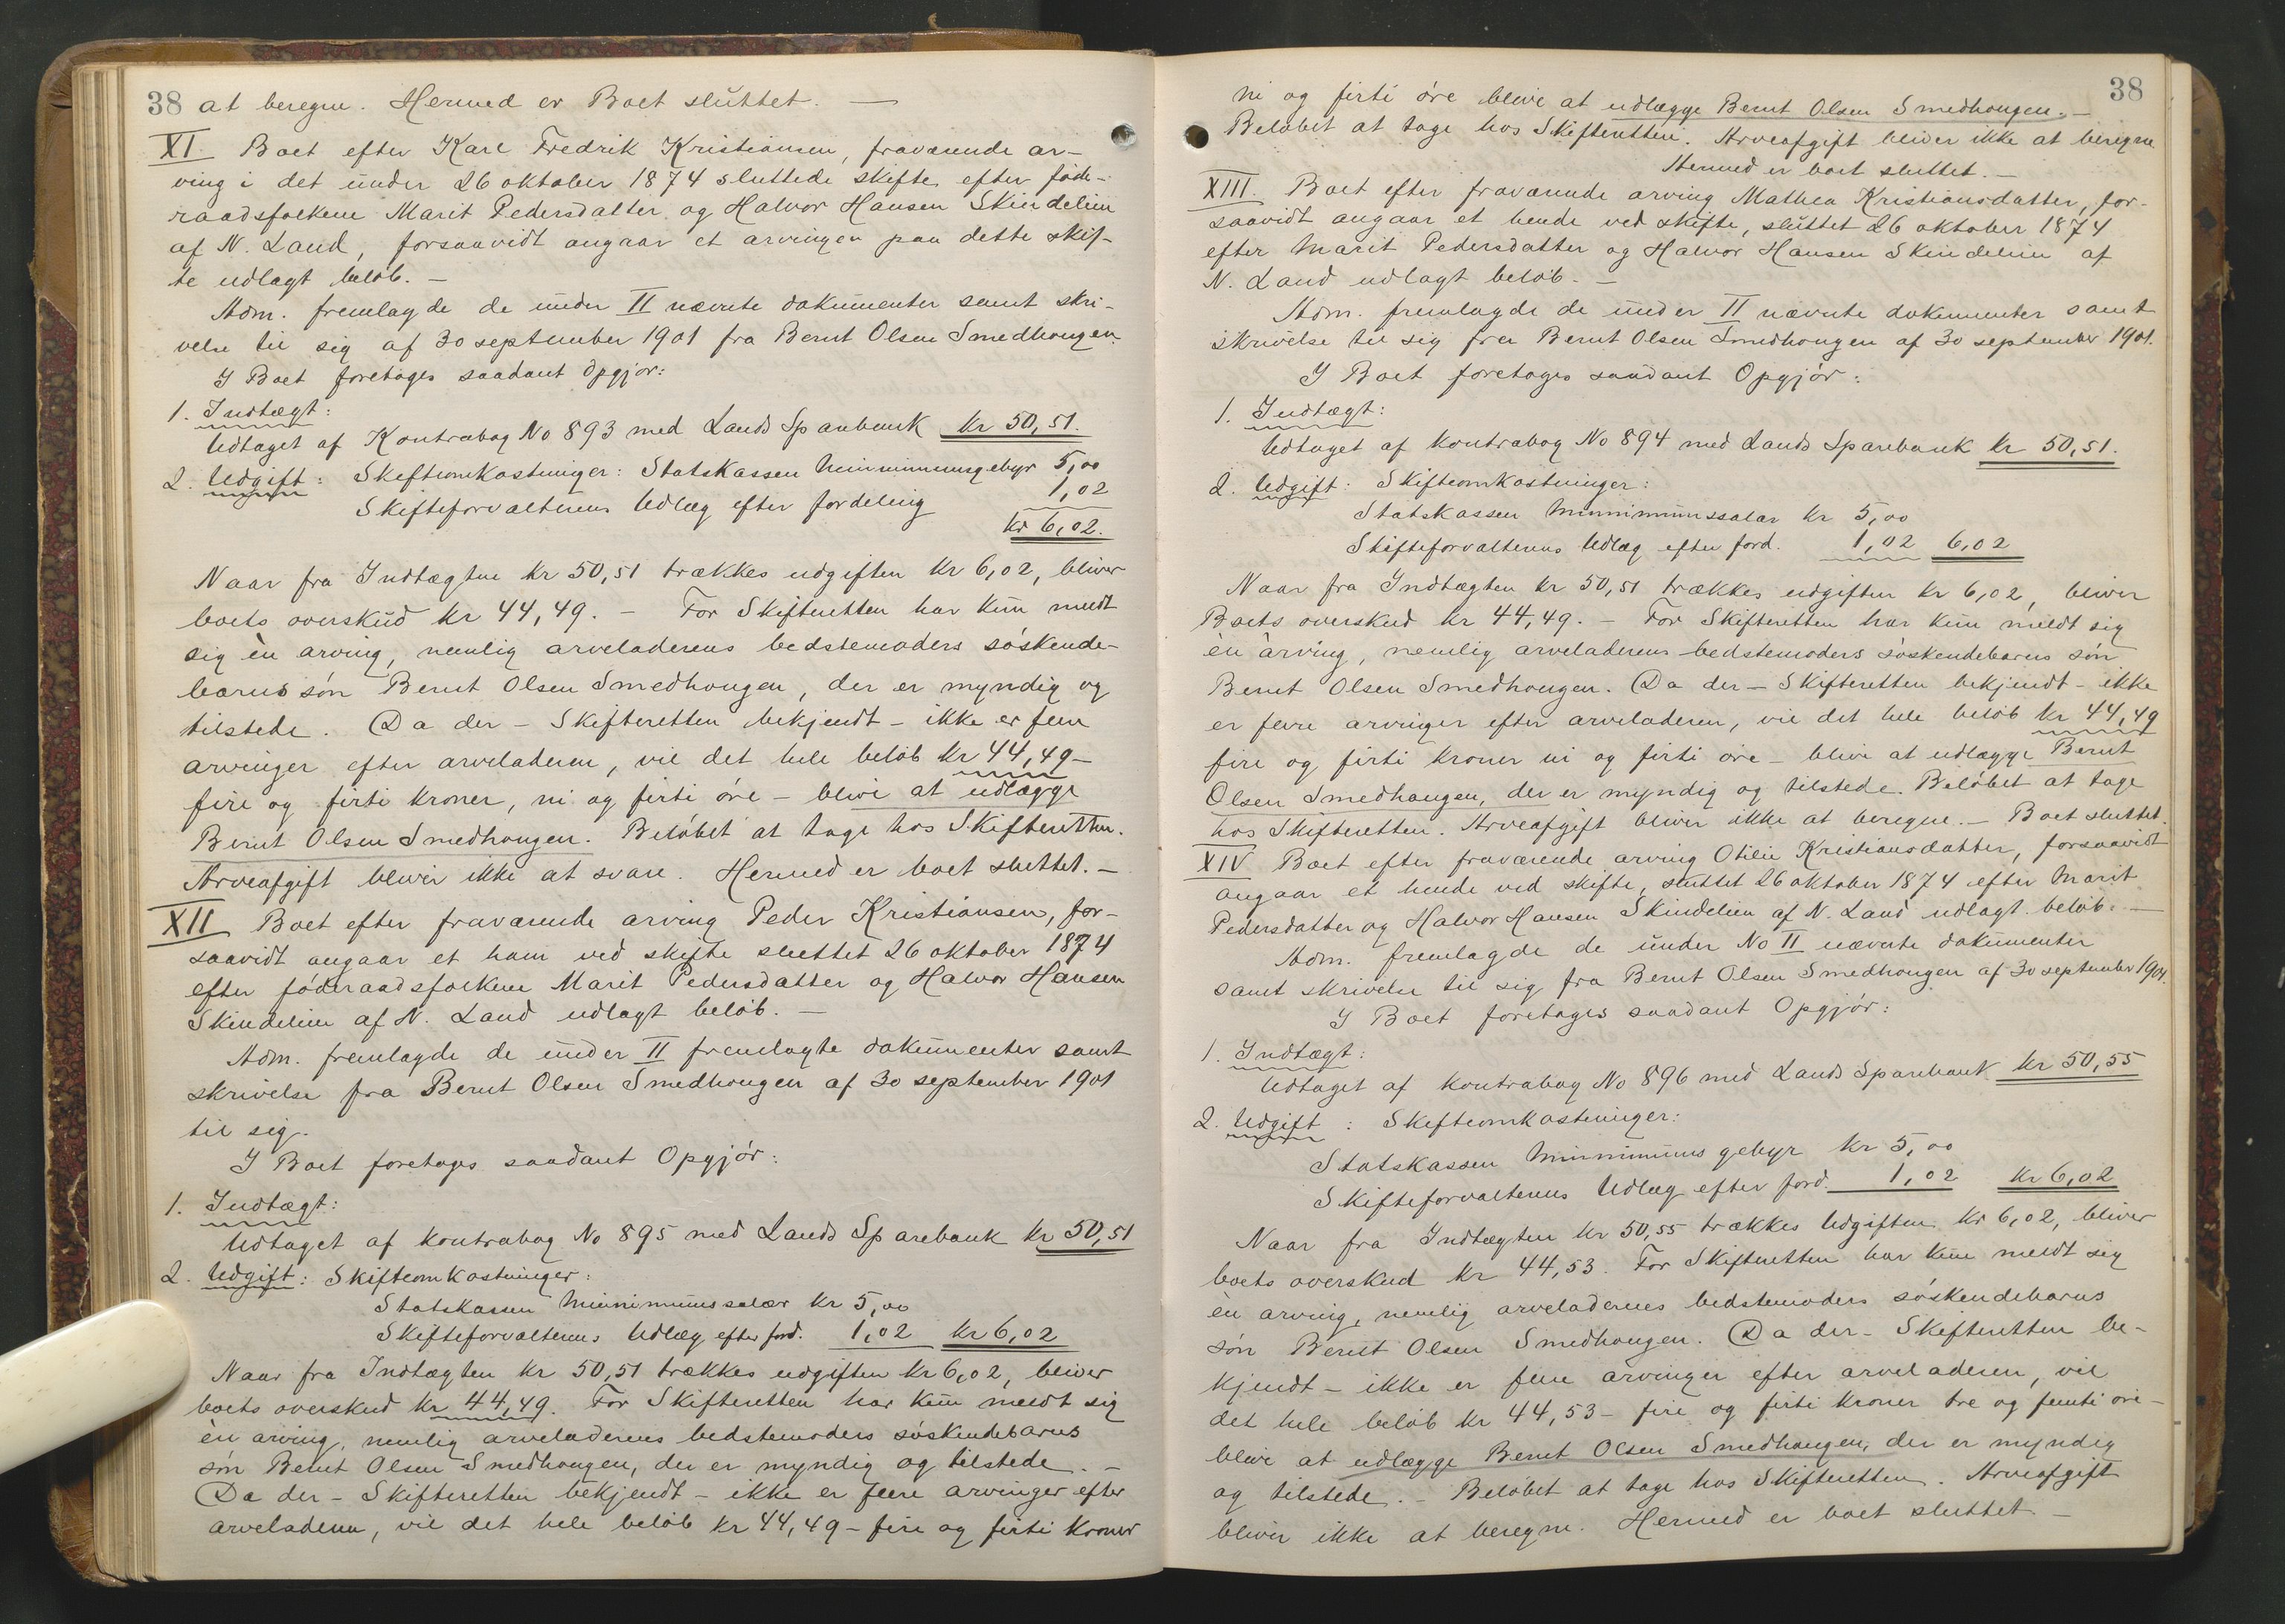 38 at beregne. Hermed er Boet sluttet. —
XI Boet efter Karl Fredrik Kristiansen, fraværende ar-
ving i det under 26 oktober 1874 sluttede skifte efter föde-
raadsfolkene Marit Pedersdatter og Halvor Hansen Skindelien
af N. Land, forsaavidt angaar et arvingen paa dette skif-
te udlagt beløb. —
Adm. fremlagde de under II nævnte dokumenter samt skri-
velse til sig af 30 september 1901 fra Bernt Olsen Smedhougen.
I Boet foretages saadant Opgjør:
1. Indtægt:
Udtaget af Kontrabog No 893 med Lands Sparebank kr 50,51.
2. Udgift: Skifteomkostninger: Statskassen Minimumsgebyr 5,00
Skifteforvalterens Udlæg efter fordeling 1,02
kr 6,02.
Naar fra Indtægten kr 50,51 trækkes udgiften kr 6,02, bliver
boets overskud kr 44,49. — For Skifteretten har kun meldt
sig èn arving, nemlig arveladerens bedstemoders söskende-
barns sön Bernt Olsen Smedhougen, der er myndig og
tilstede. Da der – Skifteretten bekjendt – ikke er flere
arvinger efter arveladeren, vil det hele beløb kr 44,49 –
fire og firti kroner, ni og firti öre – blive at udlægge
Bernt Olsen Smedhougen. Beløbet at tage hos Skifteretten.
Arveafgift bliver ikke at svare. Hermed er boet sluttet. —
XII Boet efter fraværende arving Peder Kristiansen, for-
saavidt angaar et ham ved skifte sluttet 26 oktober 1874
efter föderaadsfolkene Marit Pedersdatter og Halvor Hansen
Skindelien af N. Land udlagt beløb. —
Adm. fremlagde de under II fremlagte dokumenter samt
skrivelse fra Bernt Olsen Smedhougen af 30 september 1901
til sig.
I Boet foretages saadant Opgjør:
1. Indtægt:
Udtaget af kontrabog No 895 med Lands Sparebank kr 50,51
2. Udgift: Skifteomkostninger:
Statskassen Minimumssalær kr 5,00
Skifteforvalterens Udlæg efter ford. 1,02 kr 6,02
Naar fra Indtægten kr 50,51 trækkes udgiften kr 6,02, bliver
boets overskud kr 44,49. For Skifteretten har kun meldt sig
èn arving, nemlig arveladerens bedstemoders söskendebarns
sön Bernt Olsen Smedhougen, der er myndig og tilstede. —
Da der – Skifteretten bekjendt – ikke er flere arvinger efter
arveladeren, vil det hele beløb kr 44,49 – fire og firti kroner
38
ni og firti öre blive at udlægge Bernt Olsen Smedhougen. —
Beløbet at tage hos Skifteretten. Arveafgift bliver ikke at beregne
Hermed er boet sluttet. —
XIII. Boet efter fraværende arving Mathea Kristiansdatter, for-
saavidt angaar et hende ved skifte, sluttet 26 oktober 1874
efter Marit Pedersdatter og Halvor Hansen Skindelien af
N. Land udlagt beløb. —
Adm. fremlagde de under II nævnte dokumenter samt
skrivelse til sig fra Bernt Olsen Smedhougen af 30 september 1901.
I Boet foretages saadant Opgjör:
1. Indtægt:
Udtaget af kontrabog No 894 med Lands Sparebank kr 50,51.
2. Udgift: Skifteomkostninger:
Statskassen Minimumssalær kr 5,00
Skifteforvalterens Udlæg efter ford. 1,02 6,02
Naar fra Indtægten kr 50,51 trækkes udgiften kr 6,02, bliver
Boets overskud kr 44,49. – For Skifteretten har kun meldt sig
èn arving, nemlig arveladerens bedstemoders söskendebarns sön
Bernt Olsen Smedhougen. Da der – Skifteretten bekjendt – ikke
er flere arvinger efter arveladeren, vil det hele beløb kr 44,49
fire og firti kroner ni og firti öre – blive at udlægge Bernt
Olsen Smedhaugen, der er myndig og tilstede. Beløbet at tage
hos Skifteretten. Arveafgift bliver ikke at beregne. – Boet sluttet.
XIV Boet efter fraværende arving Otilie Kristiansdatter, forsaavidt
angaar et hende ved skifte, sluttet 26 oktober 1874 efter Marit
Pedersdatter og Halvor Hansen Skindelien af N. Land udlagt beløb. —
Adm. fremlagde de under No II nævnte dokumenter
samt skrivelse til sig fra Bernt Olsen Smedhougen af 30 september 1901.
I Boet foretages saadant Opgjör:
1. Indtægt:
Udtaget af kontrabog No 896 med Lands Sparebank kr 50,55
2. Udgift: Skifteomkostninger:
Statskassen Minimumsgebyr kr 5,00
Skifteforvalterens Udlæg efter ford. 1,02 kr 6,02
Naar fra Indtægten kr 50,55 trækkes Udgiften kr 6,02, bliver
boets overskud kr 44,53. For Skifteretten har kun meldt sig
èn arving, nemlig arveladerens bedstemoders söskendebarns
sön Bernt Olsen Smedhougen. Da der – Skifteretten be-
kjendt – ikke er flere arvinger efter arveladeren, vil
det hele beløb kr 44,53 – fire og firti kroner tre og femti öre –
blive at udlægge Bernt Olsen Smedhaugen, der er myndig
og tilstede. – Beløbet at tage hos Skifteretten. Arveafgift
bliver ikke at beregne. Hermed er boet sluttet. —